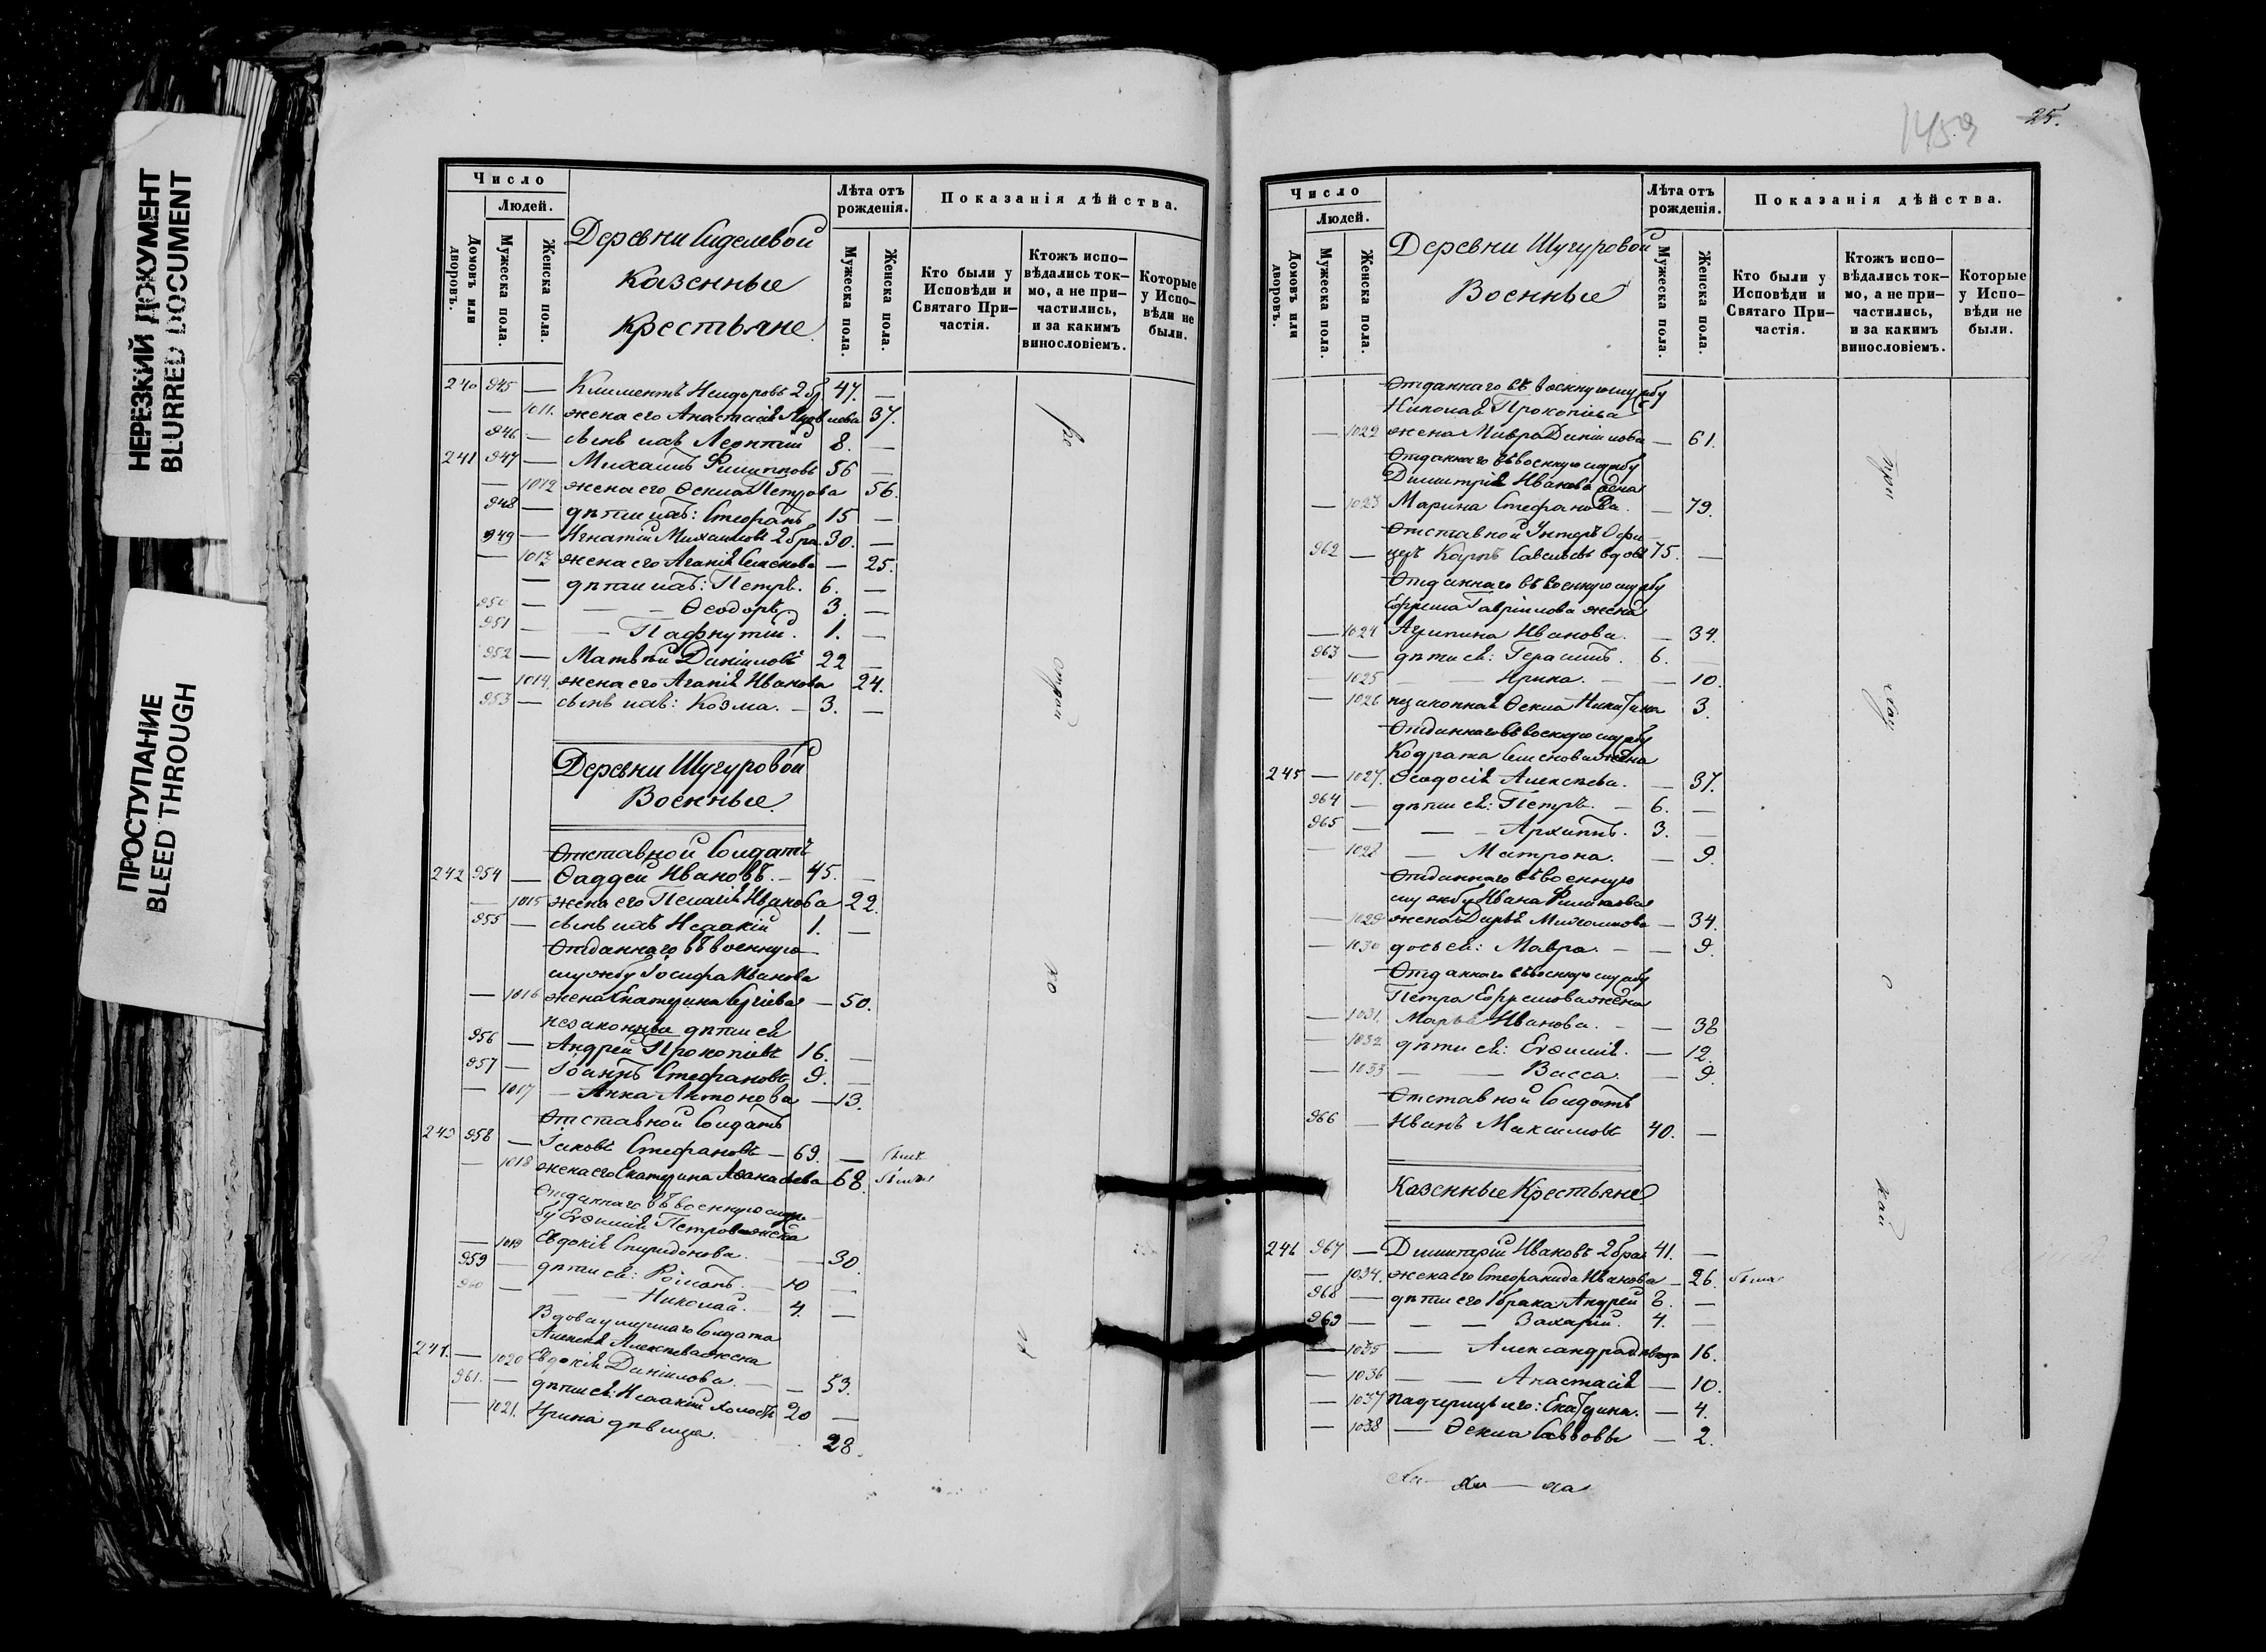 НЕРЕЗКИЙ ДОКУМЕНТ
BLURRED DOCUMENT
ПРОСТУПАНИЕ
BLEED THROUGH
Число
Людей.
Домовъ или дворовъ.
Мужеска пола.
Женска пола.
Деревни Сиделевой
Казенные
Крестьяне
Лѣта отъ рожденія.
Мужеска пола.
Женска пола.
Показанія дѣйства.
Кто были у Исповѣди и Святаго Причастія.
Ктожъ исповѣдались токмо, а не причастились, и за какимъ винословіемъ.
Которые у Исповѣди не были.
240 945 — Климентъ Исидоровъ 2 бр 47. —
— 1011. жена его Анастасія Яковлева 37.
946 — сынъ ихъ Леонтій 8. —
241 947 — Михаилъ Филипповъ 56 —
— 1012 жена его Ѳекла Петрова 56.
948 — дѣти ихъ: Стефанъ 15 —
949 — Игнатій Михаиловъ 2 бра. 30. —
— 1013 жена его Агапія Семенова — 25.
— дѣти ихъ: Петръ. 6. —
950 — — — Ѳеодоръ. 3. —
951 — — Пафнутій. 1. —
952 — Матвѣй Даніиловъ 22 —
— 1014. жена его Агапія Иванова 24.
953 — сынъ ихъ: Козма. — 3. —
Деревни Шугуровой
Военные
Отставной Солдатъ
242 954 — Ѳаддей Ивановъ. — 45. —
— 1015 жена его Пелагія Иванова 22.
955 — сынъ ихъ Исаакій 1. —
Отданнаго въ военную
службу Іосифа Иванова
— 1016 жена Екатерина Сергіева — 50.
незаконные дѣти ея
956 — Андрей Прокопіевъ 16. —
957 — Іоаннъ Стефановъ 9. —
— 1017 — Анна Антонова — 13.
Отставной Солдатъ
243 958 — Іаковъ Стефановъ — 69. — былъ
— 1018 жена его Екатерина Аѳанасьева 68. была
Отданнаго въ военную служ-
бу Евѳимія Петрова жена
— 1019 Евдокія Спиридонова. — 30.
959 — дѣти ея: Романъ. — 10 —
960 — — — Николай. — 4. —
Вдова умершаго Солдата
Алексія Алексѣева жена
244. — 1020 Евдокія Даніилова. — — 53.
961. — дѣти ея: Исаакій холостъ 20 —
— 1021. Ирина дѣвица. 28.
1459
25.
Число
Людей.
Домовъ или дворовъ.
Мужеска пола.
Женска пола.
Деревни Шугуровой
Военные
Лѣта отъ рожденія.
Мужеска пола.
Женска пола.
Показанія дѣйства.
Кто были у Исповѣди и Святаго Причастія.
Ктожъ исповѣдались токмо, а не причастились, и за какимъ винословіемъ.
Которые у Исповѣди не были.
Отданнаго въ военную службу
Николая Прокопіева
— 1022 жена Мавра Даніилова — 61.
Отданнаго въ военную службу
Димитрія Иванова жена
— 1023 Марина Стефанова. — 79.
Отставной Унтеръ Офи-
962 — церъ Карпъ Савельевъ вдовъ 75. —
Отданнаго въ военную службу
Ефрема Гавріилова жена
— 1024 Агрипина Иванова. — 34.
963 — дѣти ея: Герасимъ. 6. —
— 1025 — — Ирина. — — 10.
— 1026 незаконная Ѳекла Никитина 3.
Отданнаго въ военную службу
Кодрата Семенова жена
245 — 1027. Ѳеодосія Алексѣева. — 37.
964 — дѣти ея: Петръ. — 6. —
965 — — — Архиппъ. 3. —
— 1028 — Матрона. — 9.
Отданнаго въ военную
службу Ивана Филиппова
— 1029 жена Дарья Михаилова — 34.
— 1030 дочь ея: Мавра. — — 9.
Отданнаго въ военную службу
Петра Ефремова жена
— 1031. Марья Иванова. — — 38
— 1032 дѣти ея: Евѳимія. — 12.
— 1033 — — Васса. — 9.
Отставной Солдатъ
966 — Иванъ Максимовъ 40. —
Казенные Крестьяне
246 967 — Димитрій Ивановъ 2 брак 41. —
— 1034. жена его Стефанида Иванова — 26. была
968 — дѣти его 1 брака Андрей 8. —
969 — — — Захарій. 4. —
— 1035 — Александра дѣвица 16.
— 1036 — — Анастасія — 10.
— 1037 падчерицы его: Екатерина. — 4.
— 1038 — Ѳекла Саввовы — 2.